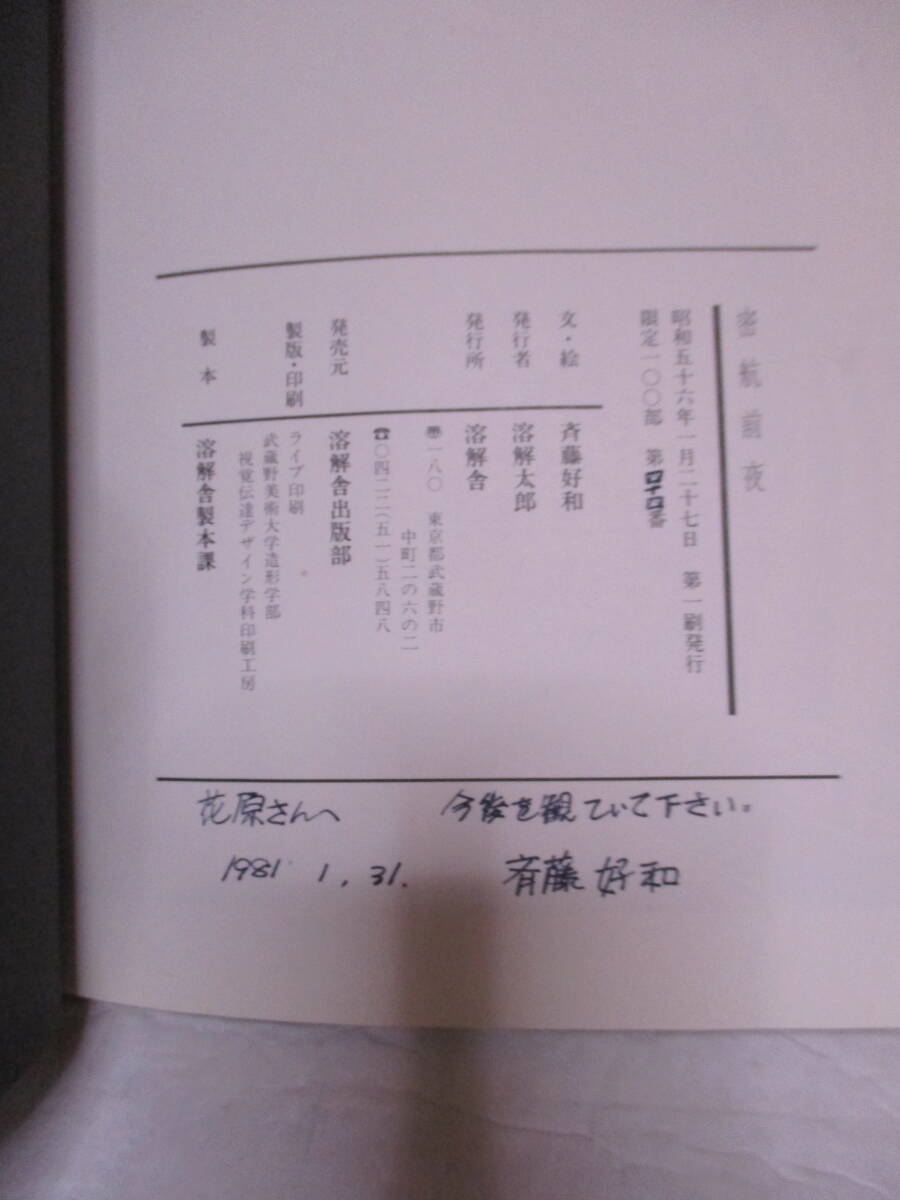 密航前夜
昭和五十六年一月二十七日　第一刷発行
限定一〇〇部　第四十四番
文・絵　斉藤好和
発行者　溶解太郎
発行所　溶解舎
〠一八〇　東京都武蔵野市
中町二の六の二
☎〇四二二(五一)五八四八
発売元　溶解舎出版部
製版・印刷　ライブ印刷
武蔵野美術大学造形学部
視覚伝達デザイン学科印刷工房
製本　溶解舎製本課
花原さんへ　今後を観ていて下さい。
1981 1, 31.　斉藤好和